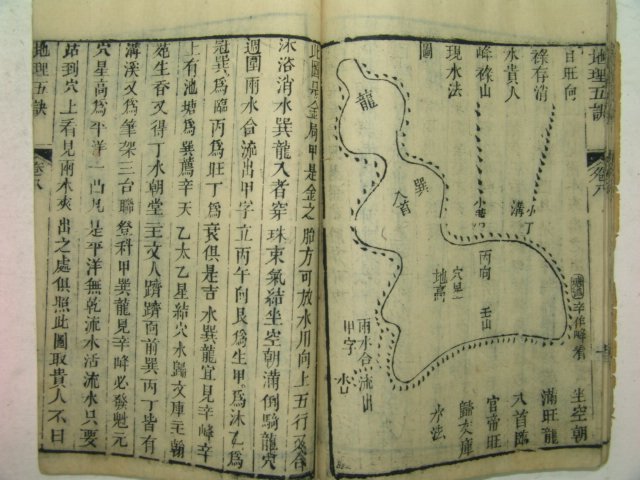 地理五訣
卷八
坐空朝
滿 旺龍
入首臨
官帝旺
歸文庫
水法
辛作峰看
小溝
丙向 壬山
穴星
地高
兩水合流出
甲字
水口
巽
入首
龍
自旺向
祿存消
水貴人
峰祿山
現水法
圖
此圖是金局甲是金之胎方可放水用向上五行又合
沐浴消水巽龍入者穿珠束氣結坐空朝滿倒騎龍穴
週圍兩水合流出甲字立丙午向艮為生甲為沐乙為
冠巽為臨丙為旺丁為衰俱是吉水巽龍宜見辛峰辛
上有池塘為巽薦辛天乙太乙星結穴水歸文庫主翰
苑生香又得丁水朝堂主文人濟濟而前巽丙丁皆有
溝溪又為筆架三台聯登科甲巽龍見辛峰必發魁元
穴星高為平洋一凸凡是平洋無乾流水活流水只要
站到穴上看見兩水夾出之處俱照此圖取貴人不曰
地理五訣
卷八